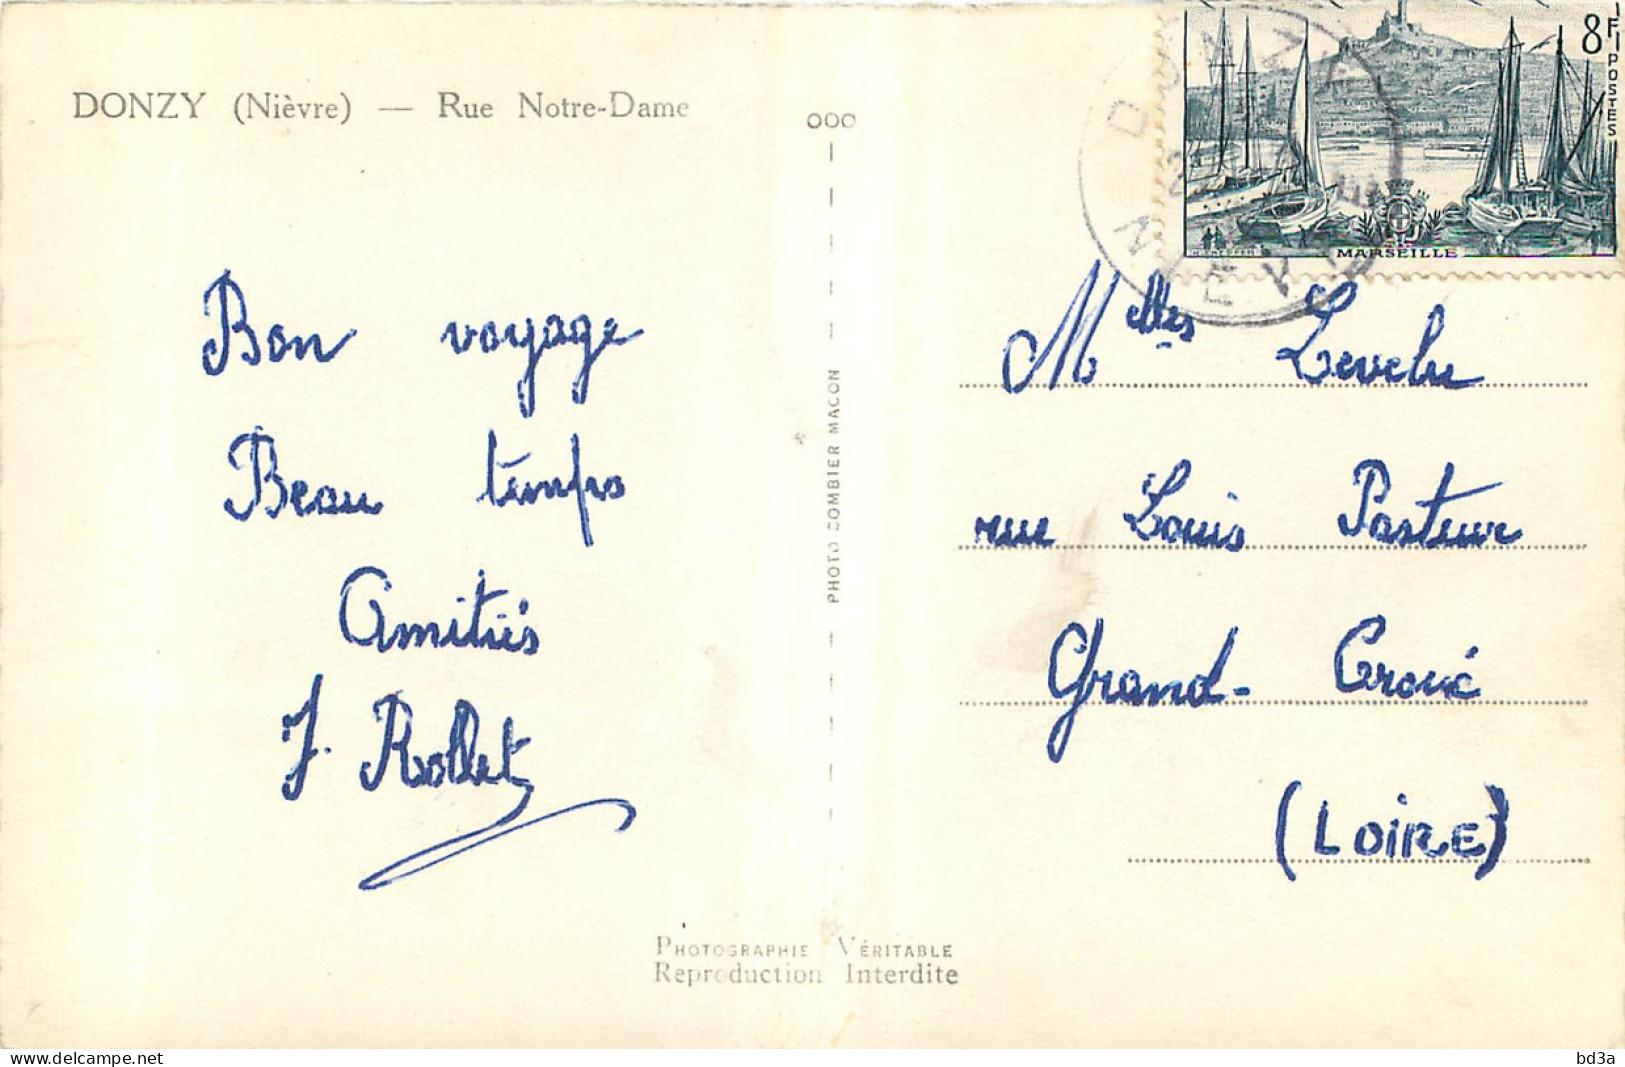 DONZY (Nièvre) — Rue Notre-Dame
Bon voyage
Beau temps
Amitiés
J. Rollet
PHOTO COMBIER MACON
PHOTOGRAPHIE VÉRITABLE
Reproduction Interdite
8F
POSTES
MARSEILLE
DONZY
NIEVRE
Melles Levelu
rue Louis Pasteur
Grand-Croix
(LOIRE)
delcampe.net
bd3a